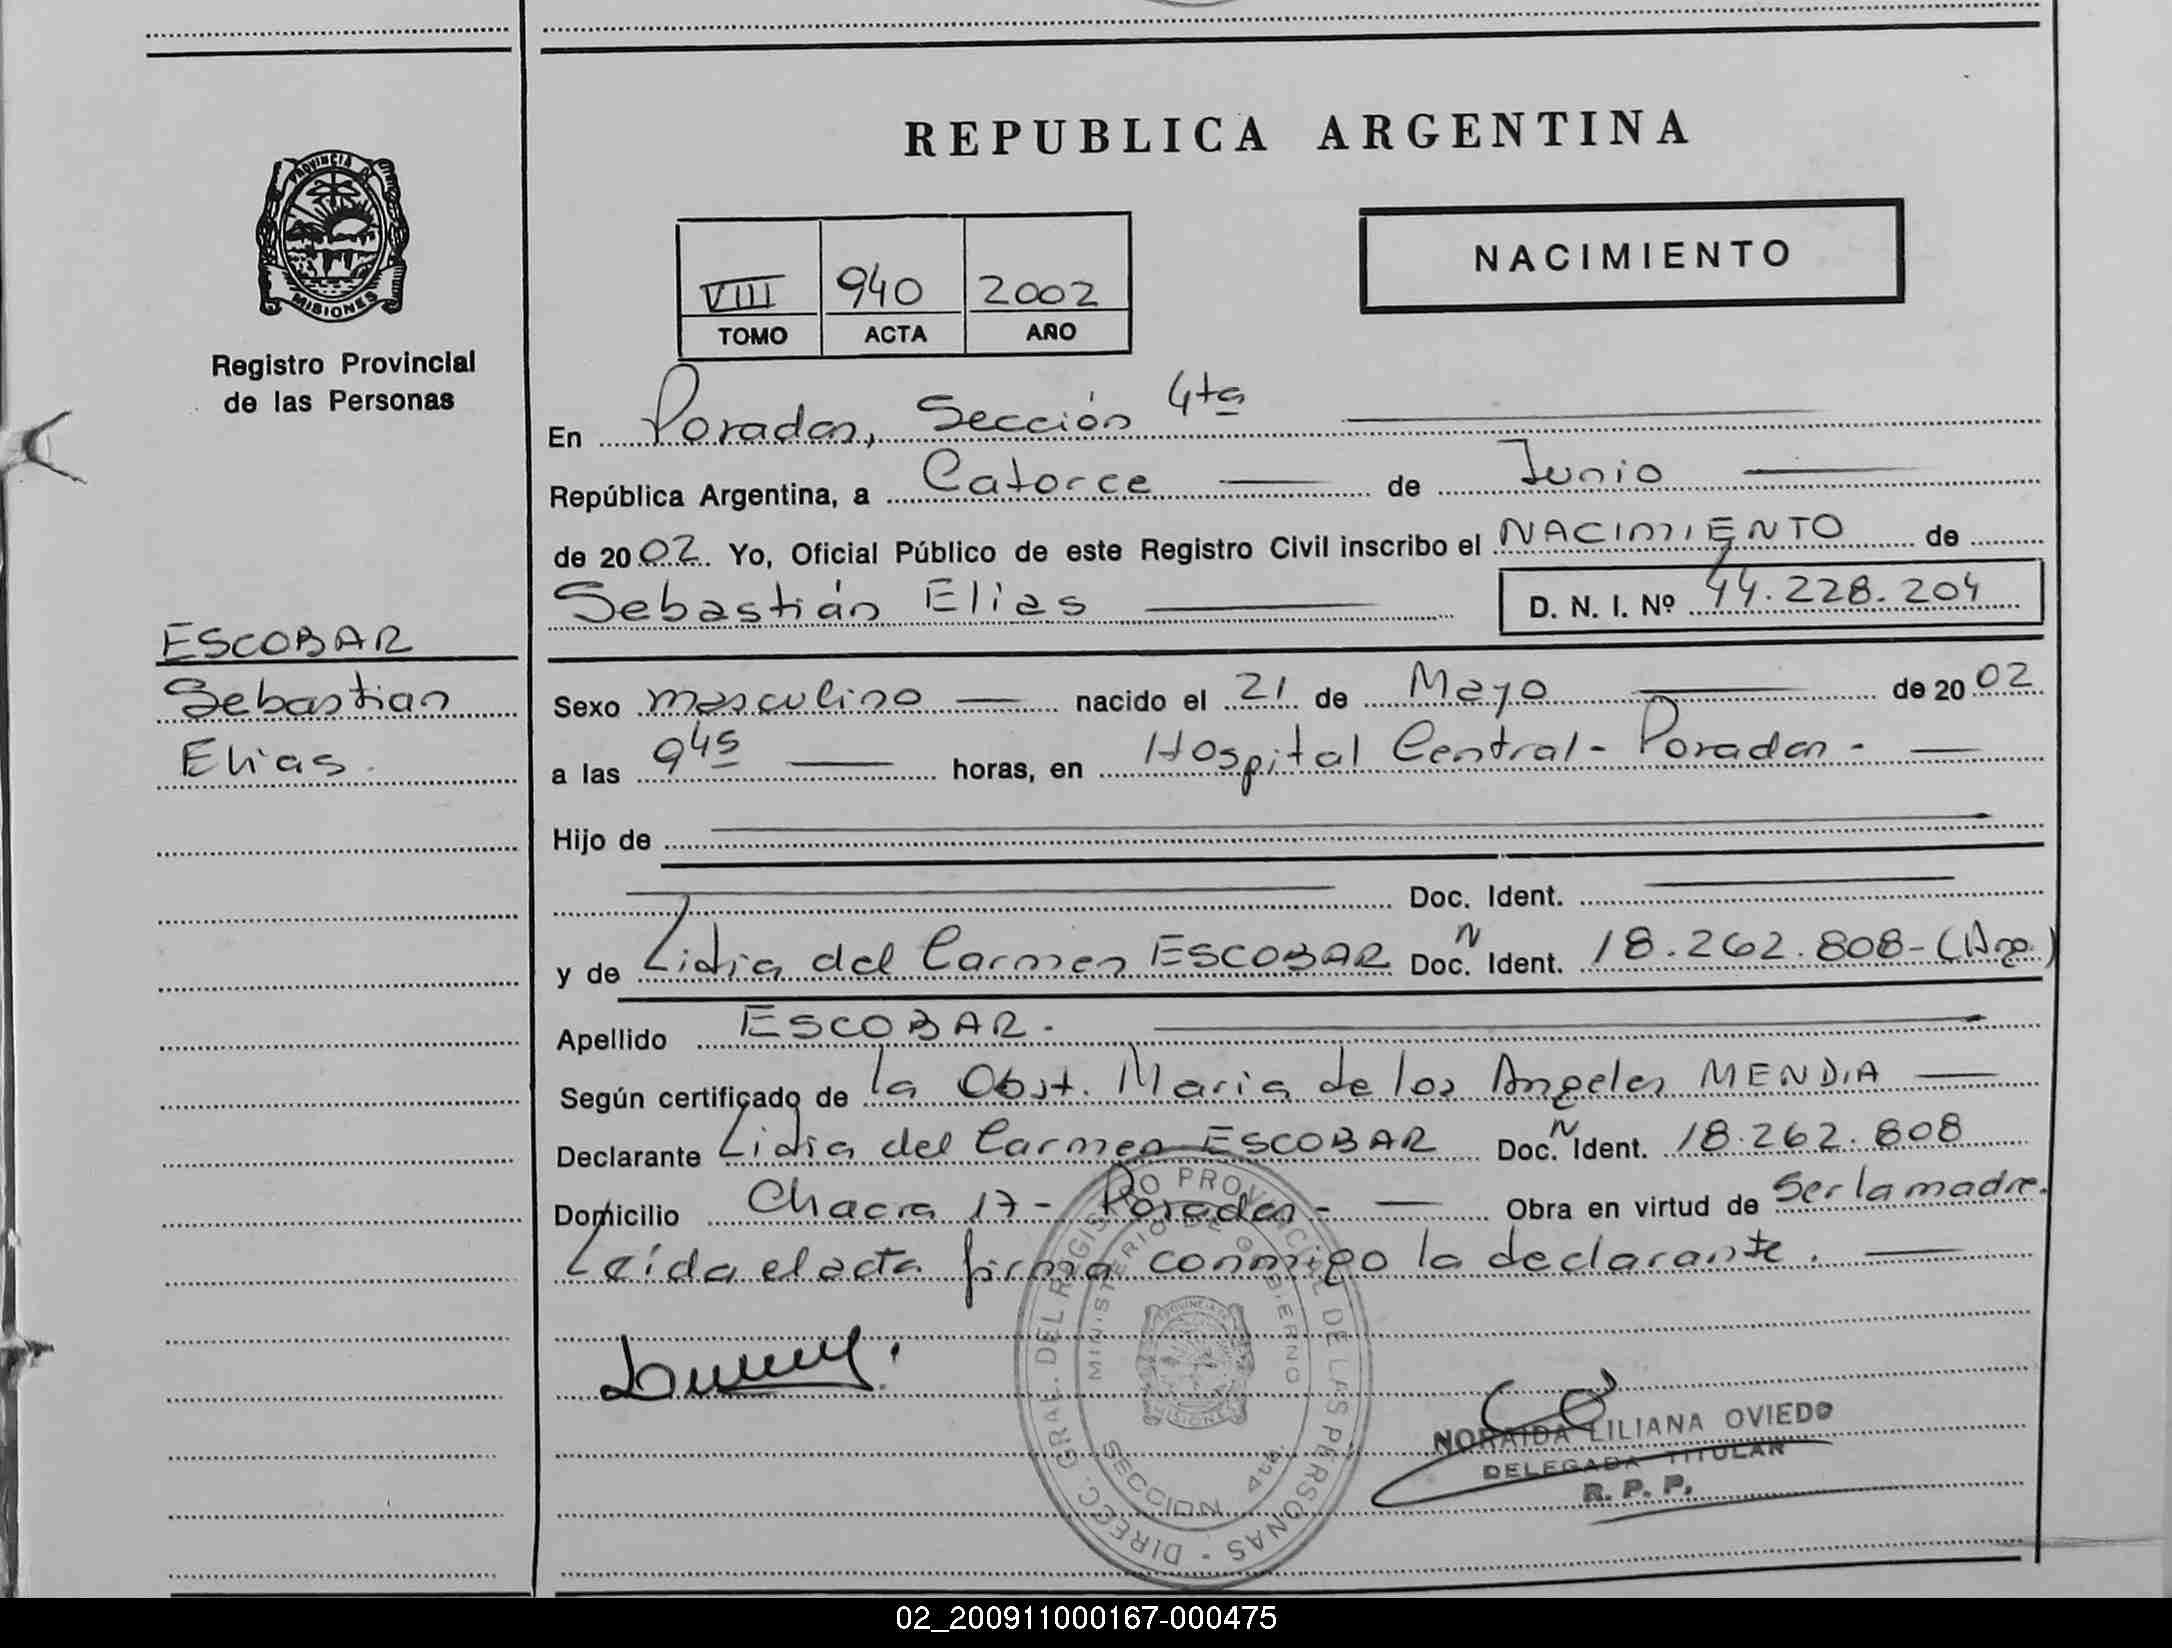 REPUBLICA ARGENTINA
PROVINCIA DE
MISIONES
Registro Provincial
de las Personas
NACIMIENTO
VIII 940 2002
TOMO ACTA AÑO
En Posadas, Sección 4ta
República Argentina, a Catorce de Junio
de 2002. Yo, Oficial Público de este Registro Civil inscribo el NACIMIENTO de
Sebastián Elias D. N. I. Nº 44.228.204
ESCOBAR
Sebastian
Elias.
Sexo masculino nacido el 21 de Mayo de 2002
a las 9 45 horas, en Hospital Central - Posadas -
Hijo de
Doc. Ident.
y de Lidia del Carmen ESCOBAR Doc. N Ident. 18.262.808 - (Arg.)
Apellido ESCOBAR.
Según certificado de la Obst. Maria de los Angeles MENDIA
Declarante Lidia del Carmen ESCOBAR Doc. N Ident. 18.262.808
Domicilio Chacra 17 - Posadas - Obra en virtud de Ser la madre.
Leída el acta firma conmigo la declarante.
DIRECC. GRAL. DEL REGISTRO PROVINCIAL DE LAS PERSONAS -
MINISTERIO DE GOBIERNO
PROVINCIA DE
MISIONES
SECCION 4ta.
NORAIDA LILIANA OVIEDO
DELEGADA TITULAR
R. P. P.
02_200911000167-000475